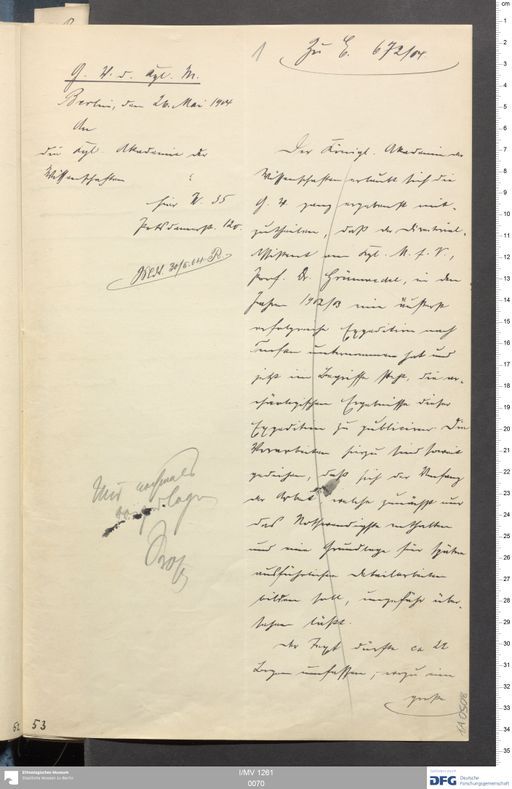 1
Zu E. 672/04
G. V. d. Kgl. M.
Berlin, den 26. Mai 1904
An
die Kgl. Akademie der
Wissenschaften
hier W. 35
Potsdamerst. 120.
30/5.04.
Der Königl. Akademie der
Wissenschaften erlaubt sich die
G. V. ganz ergebenst mit-
zutheilen, daß der Direktorial-
Assistent am Kgl. M. f. V.,
Prof. Dr. Grünwedel, in den
Jahren 1902/03 eine äußerst
erfolgreiche Expedition nach
Turfan unternommen hat und
jetzt im Begriffe steht, die ar-
chäologischen Ergebnisse dieser
Expedition zu publiciren. Die
Vorarbeiten hierzu sind soweit
gediehen, daß sich der Umfang
der Arbeit welche zunächst nur
das Nothwendigste enthalten
und eine Grundlage für spätere
ausführlichere Detailarbeiten
bilden soll, ungefähr über-
sehen läßt.
Der Text dürfte ca 22
Bogen umfassen, wozu eine
große
Mir nochmals
vorzulegen
53
110508
Ethnologisches Museum
Staatliche Museen zu Berlin
I/MV 1261
0070
gefördert durch
DFG Deutsche
Forschungsgemeinschaft